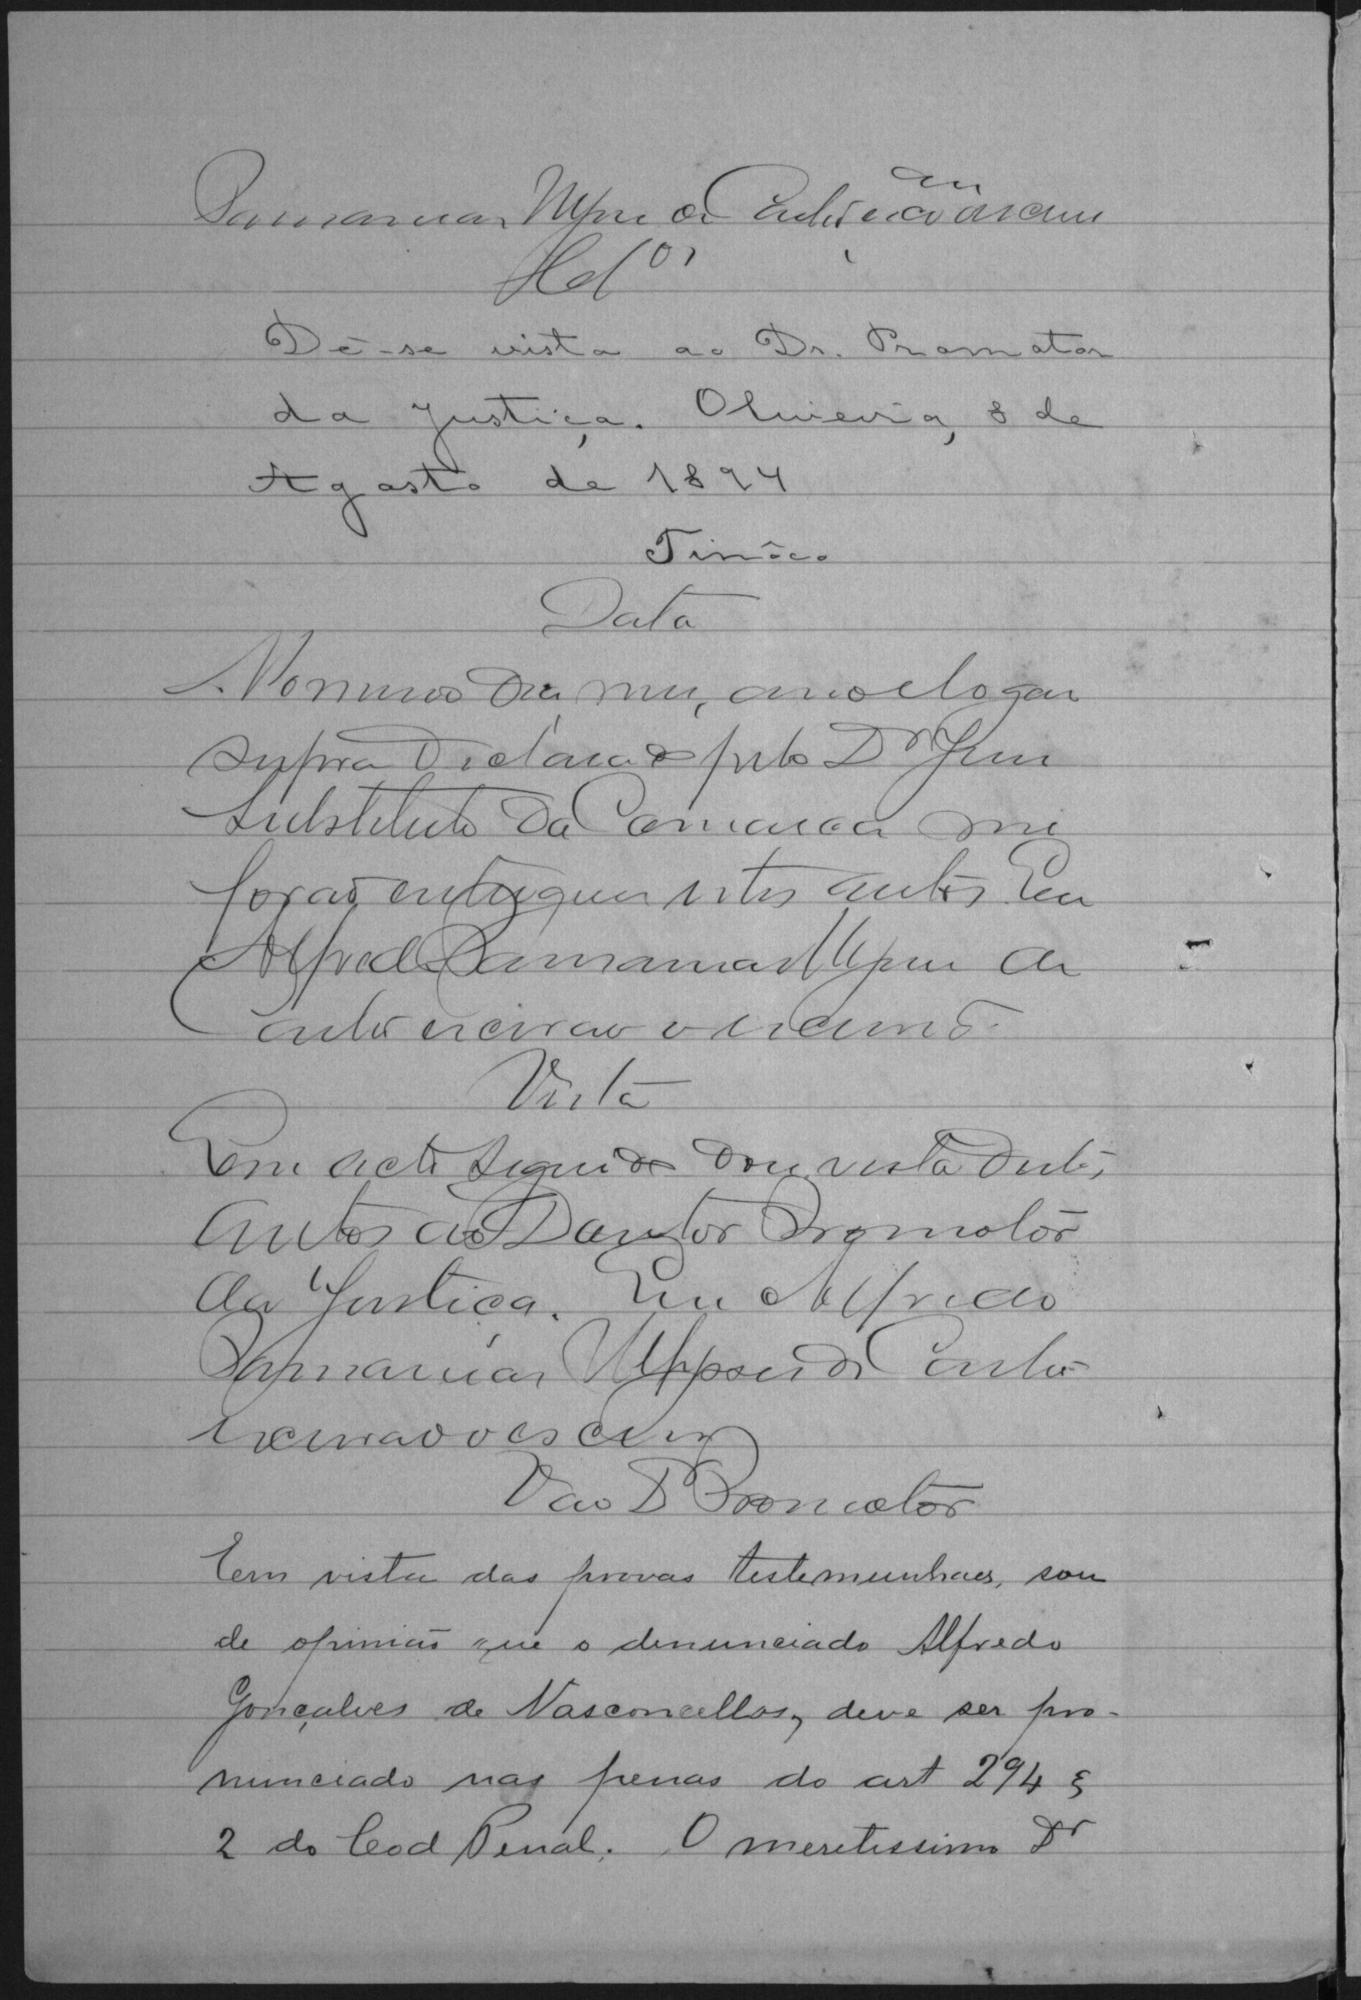 de Castro escrivão o escrevi
Dê-se vista ao Dr. Promotor
da Justiça. Oliveira, 8 de
Agosto de 1894
Tinôco
Data
No mesmo dia, mez, anno e logar
supra declarado pelo Dr Juiz
Substituto da Comarca me
forão entregues estes autos. Eu
Alfredo de
Castro escrivão o escrevi.
Vista
Em acto seguido dou vista destes
autos ao Doutor Promotor
da Justiça. Eu Alfredo
de Castro
escrivão o escrevi
V ao Dr Promotor
Em vista das provas testemunhaes, sou
de opinião que o denunciado Alfredo
Gonçalves de Vasconcellos, deve ser pro-
nunciado nas penas do art 294 §
2 do Cod Penal. O meretissimo Dr